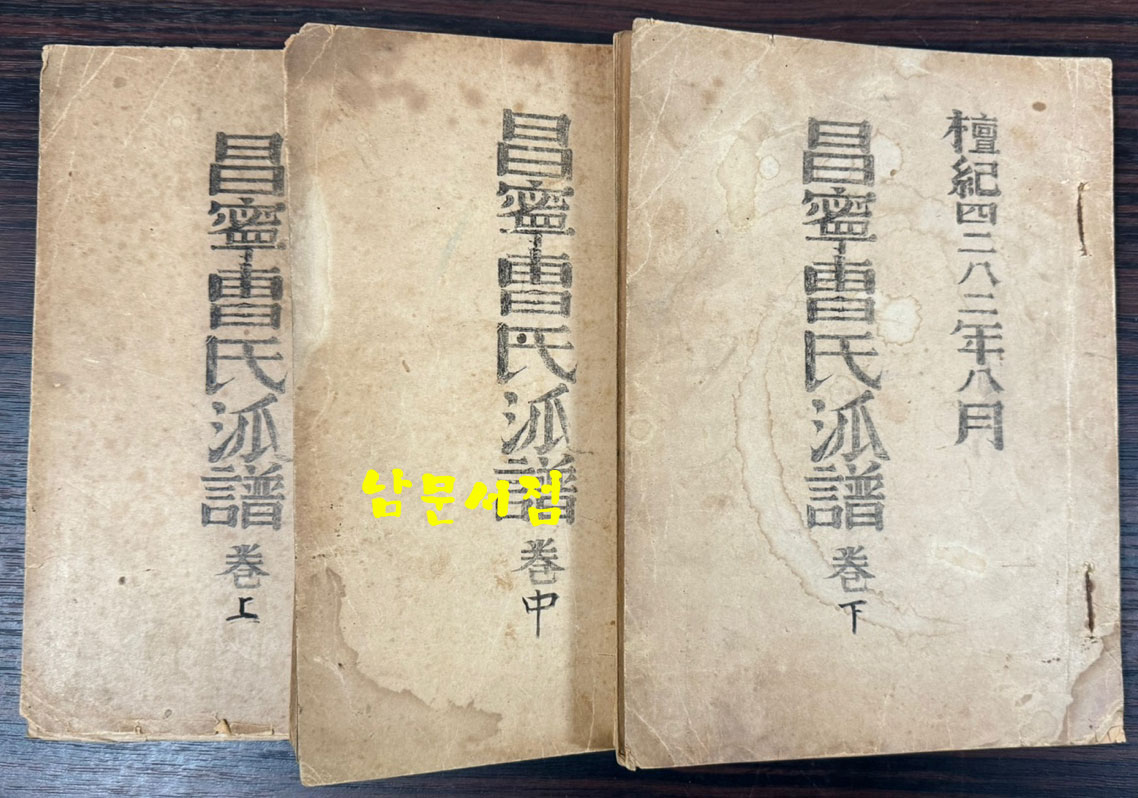 昌寧曺氏派譜 巻上
昌寧曺氏派譜 巻中
檀紀四二八二年八月
昌寧曺氏派譜 巻下
남문서점